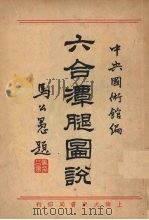 中央國術館編
六合潭腿圖說
馬公愚題
上海大東書局印行